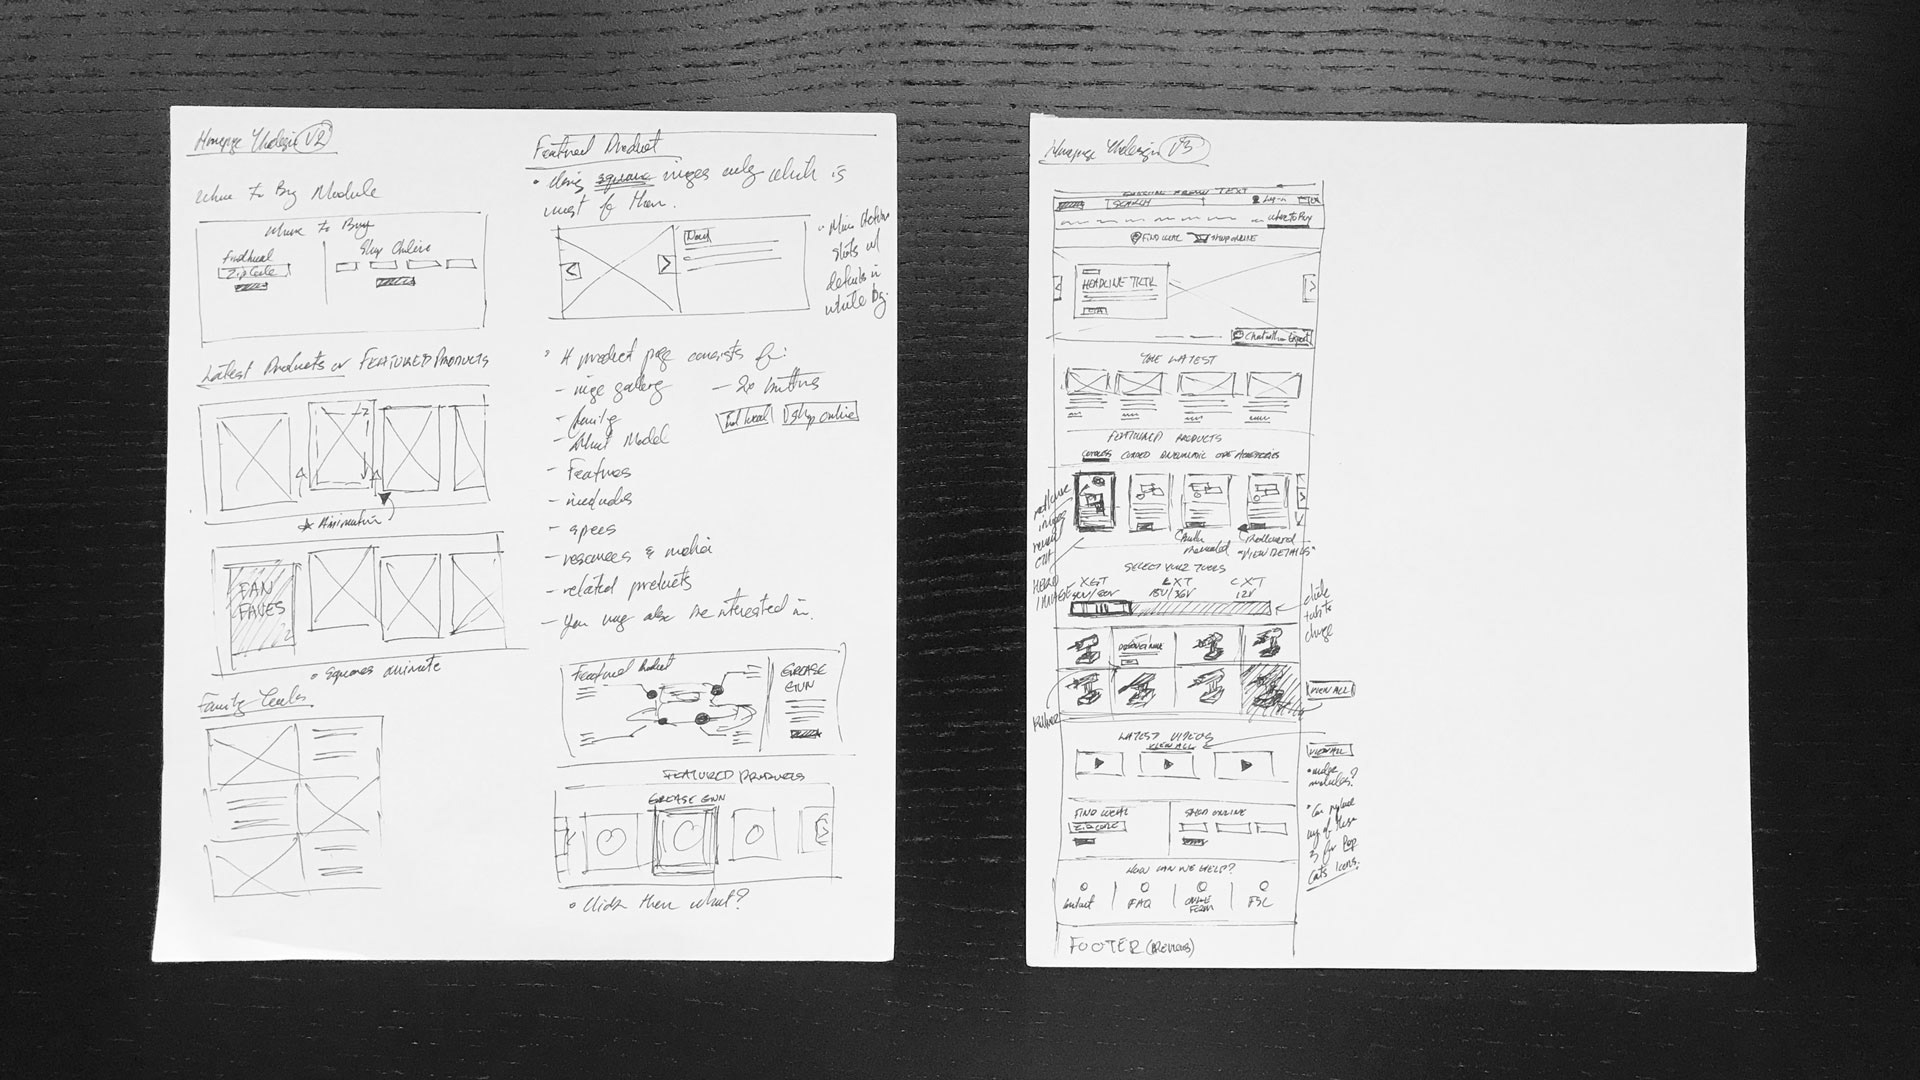 Homepage Redesign V2
Where To Buy Module
Where To Buy
Find Local
Zip Code
Shop Online
Latest Products or FEATURED PRODUCTS
Animation
FAN
FAVES
• Squares animate
Family
Featured Product
• Using square images only which is
most of them.
• More
shots w/
details in
white bg.
• A product page consists of:
- image gallery
- family
- Model
- Features
- includes
- specs
- resources & media
- related products
- You may also be interested in.
- 2x buttons
find local
shop online
Featured Product
GREASE
GUN
FEATURED PRODUCTS
GREASE GUN
• Click then what?
Homepage Redesign V3
TEXT
SEARCH
Log-in
EN
Where to Buy
FIND LOCAL
SHOP ONLINE
HEADLINE
CTA
Chat with an Expert
THE LATEST
FEATURED PRODUCTS
CORDLESS CORDED PNEUMATIC OPE ACCESSORIES
reveal
CTA
HERO
IMAGE
revealed
"VIEW DETAILS"
SELECT YOUR TOOLS
XGT
LXT
CXT
40V/80V
18V/36V
12V
click
tabs to
change
VIEW ALL
LATEST VIDEOS
VIEW ALL
VIEW ALL
• under
modules?
• Can replace
any of these
3 for Pop
Cats Icons.
FIND LOCAL
ZIP CODE
SHOP ONLINE
HOW CAN WE HELP?
Contact
FAQ
ONLINE
FORM
FSC
FOOTER (PREVIOUS)